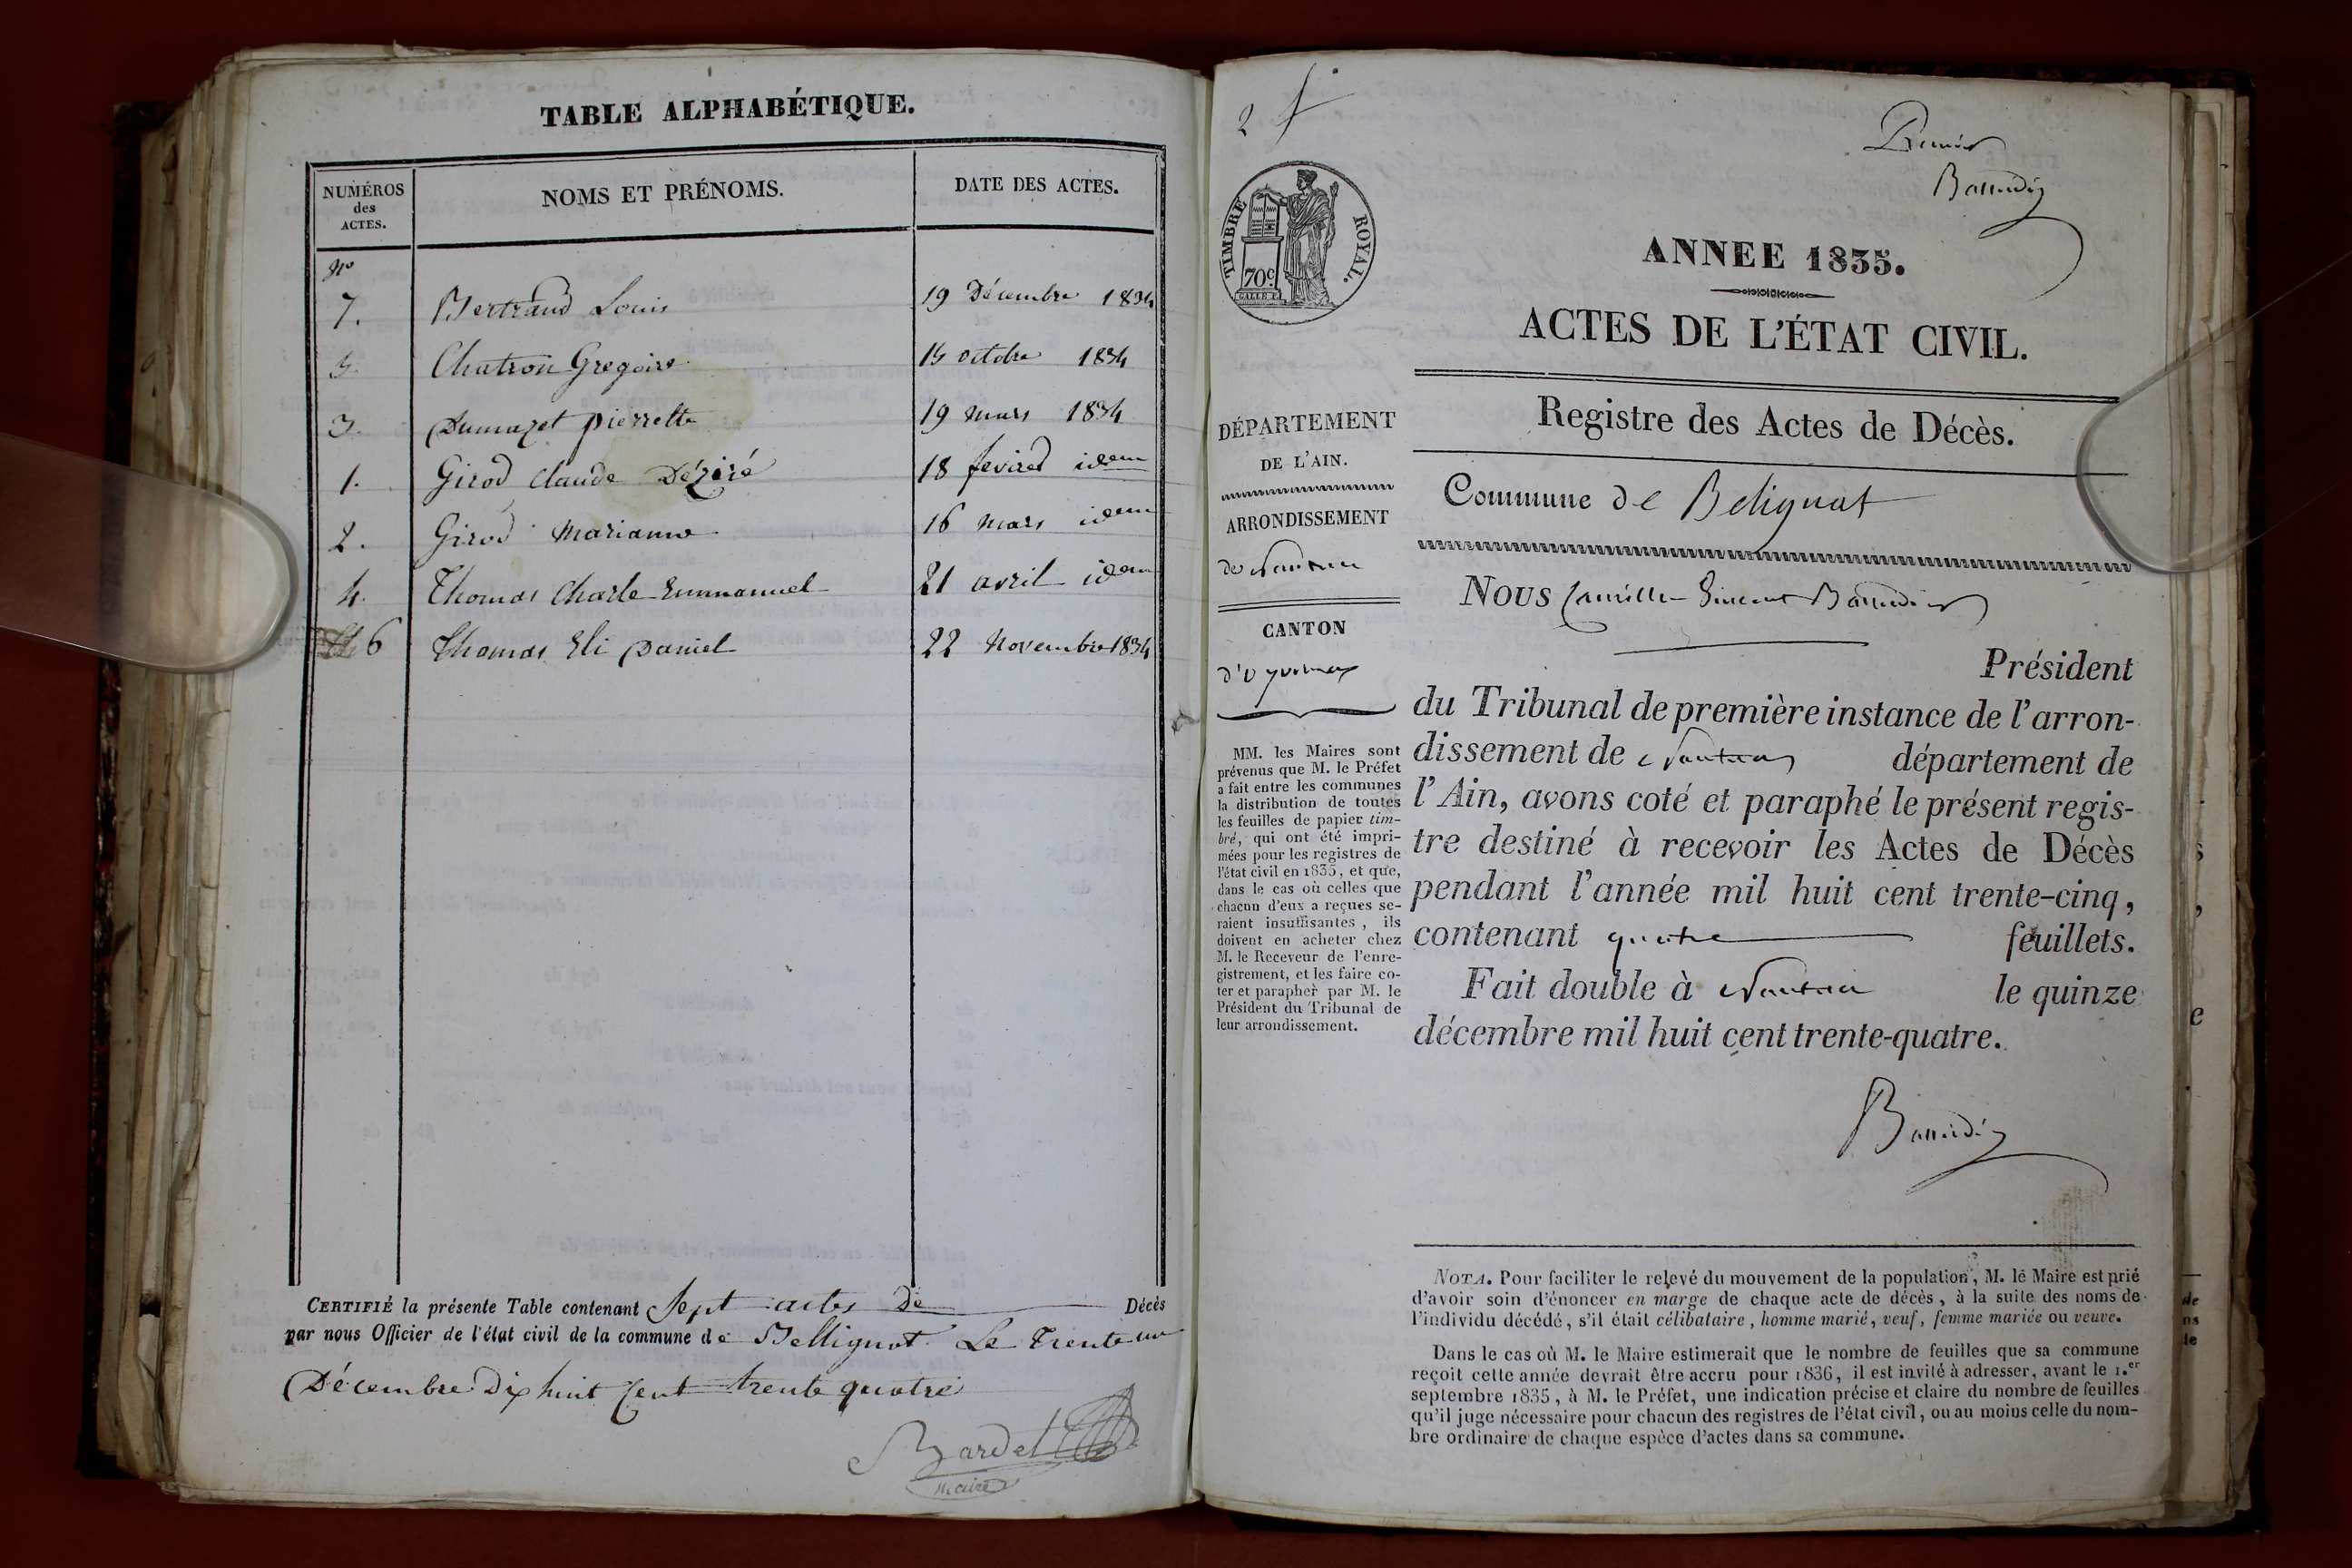 TABLE ALPHABÉTIQUE.
NUMÉROS des ACTES. NOMS ET PRÉNOMS. DATE DES ACTES.
No
7. Bertrand Louis 19 Décembre 1834
5. Chatron Gregoire 15 octobre 1834
3. Dumazet pierrette 19 mars 1834
1. Girod Claude Déziré 18 idem
2. Girod Marianne 16 mars idem
4. Thomas Charle Emmanuel 21 avril idem
6 Thomas Eli Daniel 22 Novembre 1834
CERTIFIÉ la présente Table contenant Sept actes de Décès
par nous Officier de l'état civil de la commune de Bellignat Le Trente un
Décembre Dix huit Cent trente quatre
Bardet
maire
2 f
Premier
TIMBRE ROYAL.
70c
ANNEE 1835.
ACTES DE L'ÉTAT CIVIL.
Registre des Actes de Décès.
Commune de Belignat
DÉPARTEMENT
DE L'AIN.
ARRONDISSEMENT
de Nantua
CANTON
d'Oyonnax
MM. les Maires sont
prévenus que M. le Préfet
a fait entre les communes
la distribution de toutes
les feuilles de papier tim-
bré, qui ont été impri-
mées pour les registres de
l'état civil en 1835, et que,
dans le cas où celles que
chacun d'eux a reçues se-
raient insuffisantes, ils
doivent en acheter chez
M. le Receveur de l'enre-
gistrement, et les faire co-
ter et parapher par M. le
Président du Tribunal de
leur arrondissement.
NOUS Camille Vincent
Président
du Tribunal de première instance de l'arron-
dissement de Nantua département de
l'Ain, avons coté et paraphé le présent regis-
tre destiné à recevoir les Actes de Décès
pendant l'année mil huit cent trente-cinq,
contenant quatre feuillets.
Fait double à Nantua le quinze
décembre mil huit cent trente-quatre.
NOTA. Pour faciliter le relevé du mouvement de la population, M. le Maire est prié
d'avoir soin d'énoncer en marge de chaque acte de décès, à la suite des noms de
l'individu décédé, s'il était célibataire, homme marié, veuf, femme mariée ou veuve.
Dans le cas où M. le Maire estimerait que le nombre de feuilles que sa commune
reçoit cette année devrait être accru pour 1836, il est invité à adresser, avant le 1.er
septembre 1835, à M. le Préfet, une indication précise et claire du nombre de feuilles
qu'il juge nécessaire pour chacun des registres de l'état civil, ou au moins celle du nom-
bre ordinaire de chaque espèce d'actes dans sa commune.